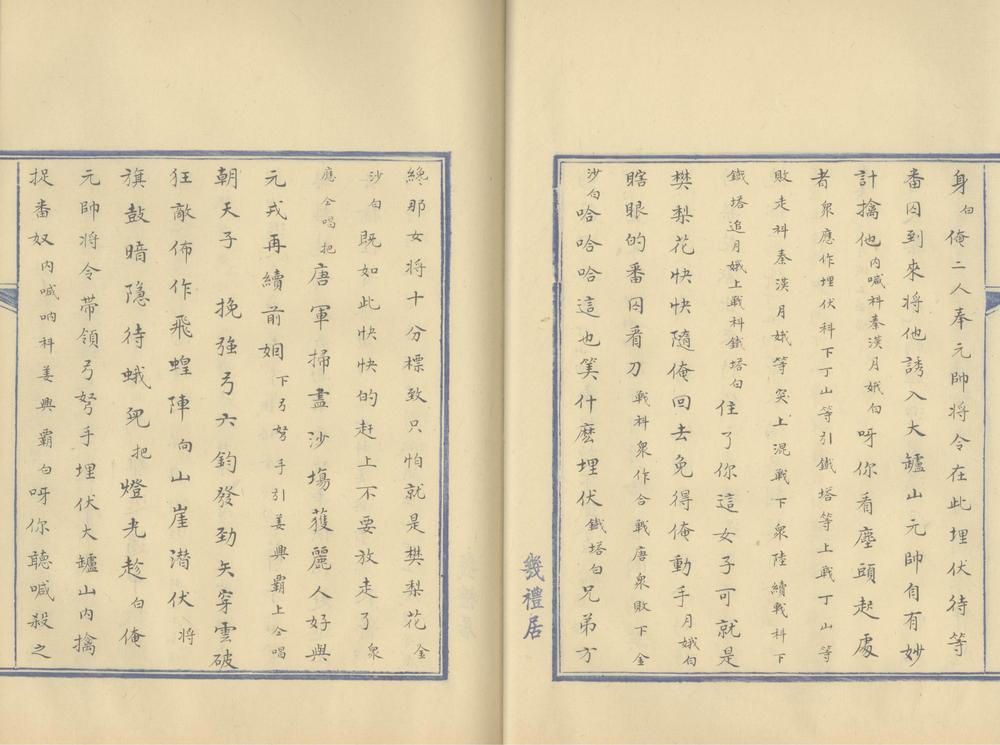 身白俺二人奉元帥将令在此埋伏待等
番囚到來将他誘入大鑪山元帥自有妙
計擒他内喊科秦漢月娥白呀你看塵頭起處
者衆應作埋伏科下丁山等引鐵塔等上戰丁山等
敗走科秦漢月娥等突上混戰下衆陸續戰科下
鐵塔追月娥上戰科鐵塔白住了你這女子可就是
樊梨花快快隨俺回去免得俺動手月娥白
瞎眼的番囚看刀戰科衆作合戰唐衆敗下金
沙白哈哈哈這也筭什麽埋伏鐵塔白兄弟方
幾禮居
纔那女将十分標致只怕就是樊梨花金
沙白既如此快快的赶上不要放走了衆
應仝唱把唐軍掃盡沙塲獲麗人好與
元戎再續前姻下弓弩手引姜興霸上仝唱
朝天子挽強弓六鈞發勁矢穿雲破
狂敵佈作飛蝗陣向山崖潛伏将
旗鼓暗隐待蛾兒把燈光趁白俺
元帥将令帶領弓弩手埋伏大鑪山内擒
捉番奴内喊吶科姜興霸白呀你聽喊殺之